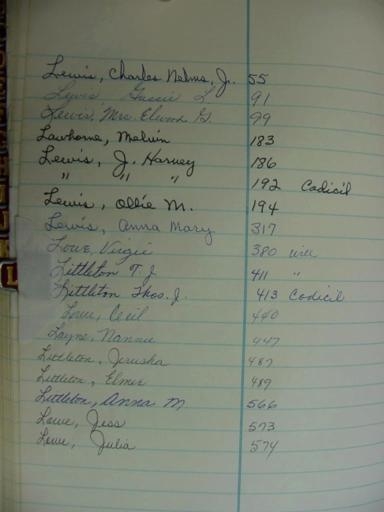 Lewis, Charles Nelms, Jr. 55
Lyves, Gassie L 91
Lewis, Mrs. Elwood G. 99
Lawhorne, Melvin 183
Lewis, J. Harvey 186
" " " 192 Codicil
Lewis, Ollie M. 194
Lewis, Anna Mary 317
Lowe, Virgie 380 will
Littleton T. J 411 "
Littleton Thos. J. 413 Codicil
Lowe, Cecil 440
Layne, Nannie 447
Littleton, Jerusha 487
Littleton, Elmer 489
Littleton, Anna M 566
Lowe, Jess 573
Lowe, Julia 574